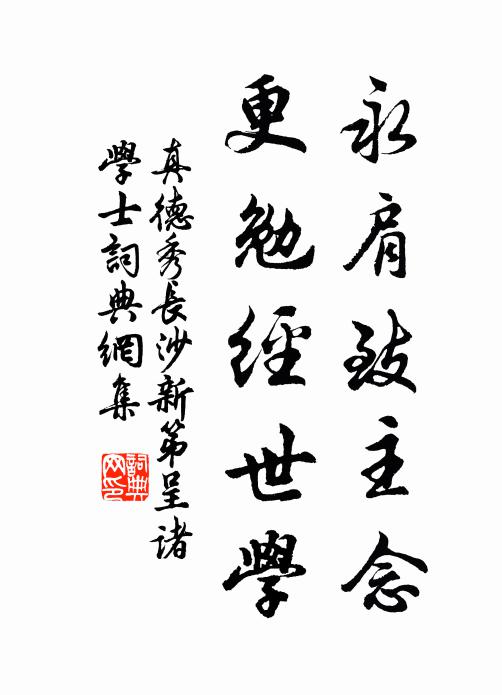 永肩致主念
更勉經世學
真德秀長沙新第呈諸
學士詞典網集
詞典網印